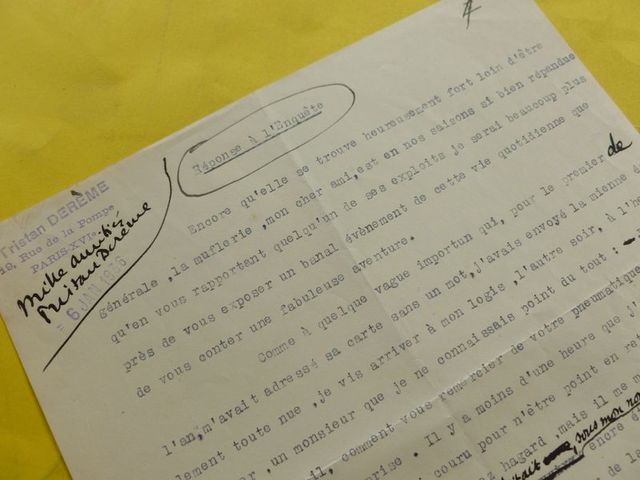 Réponse à l'Enquête
Tristan DERÈME
Rue de la Pompe
PARIS-XVIe
Mille amitiés
Tristan Derème
6 JAN 1936
Encore qu'elle se trouve heureusement fort loin d'être
générale ,la muflerie ,mon cher ami,est en nos saisons si bien répandue
qu'en vous rapportant quelqu'un de ses exploits je serai beaucoup plus
près de vous exposer un banal évènement de cette vie quotidienne que
de vous conter une fabuleuse aventure.
Comme à quelque vague importun qui, pour le premier de
l'an, m'avait adressé sa carte sans un mot,j'avais envoyé la mienne
lement toute nue ,je vis arriver à mon logis ,l'autre soir, à l'he
er ,un monsieur que je ne connaissais point du tout :
il, comment vous remercier de votre pneumatique
prise . Il y a moins d'une heure que j'
couru pour n'être point en re
hagard ,mais il me
tait sous mon
encre
de la